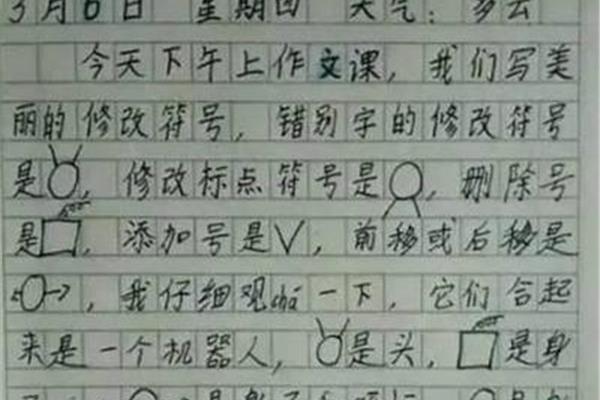 3月6日 星期四 天气：多云
今天下午上作文课，我们写美
丽的修改符号，错别字的修改符号
是，修改标点符号是，删除号
是，添加号是V，前移或后移是
，我仔细观chá一下，它们合起
来是一个机器人，是头，是身